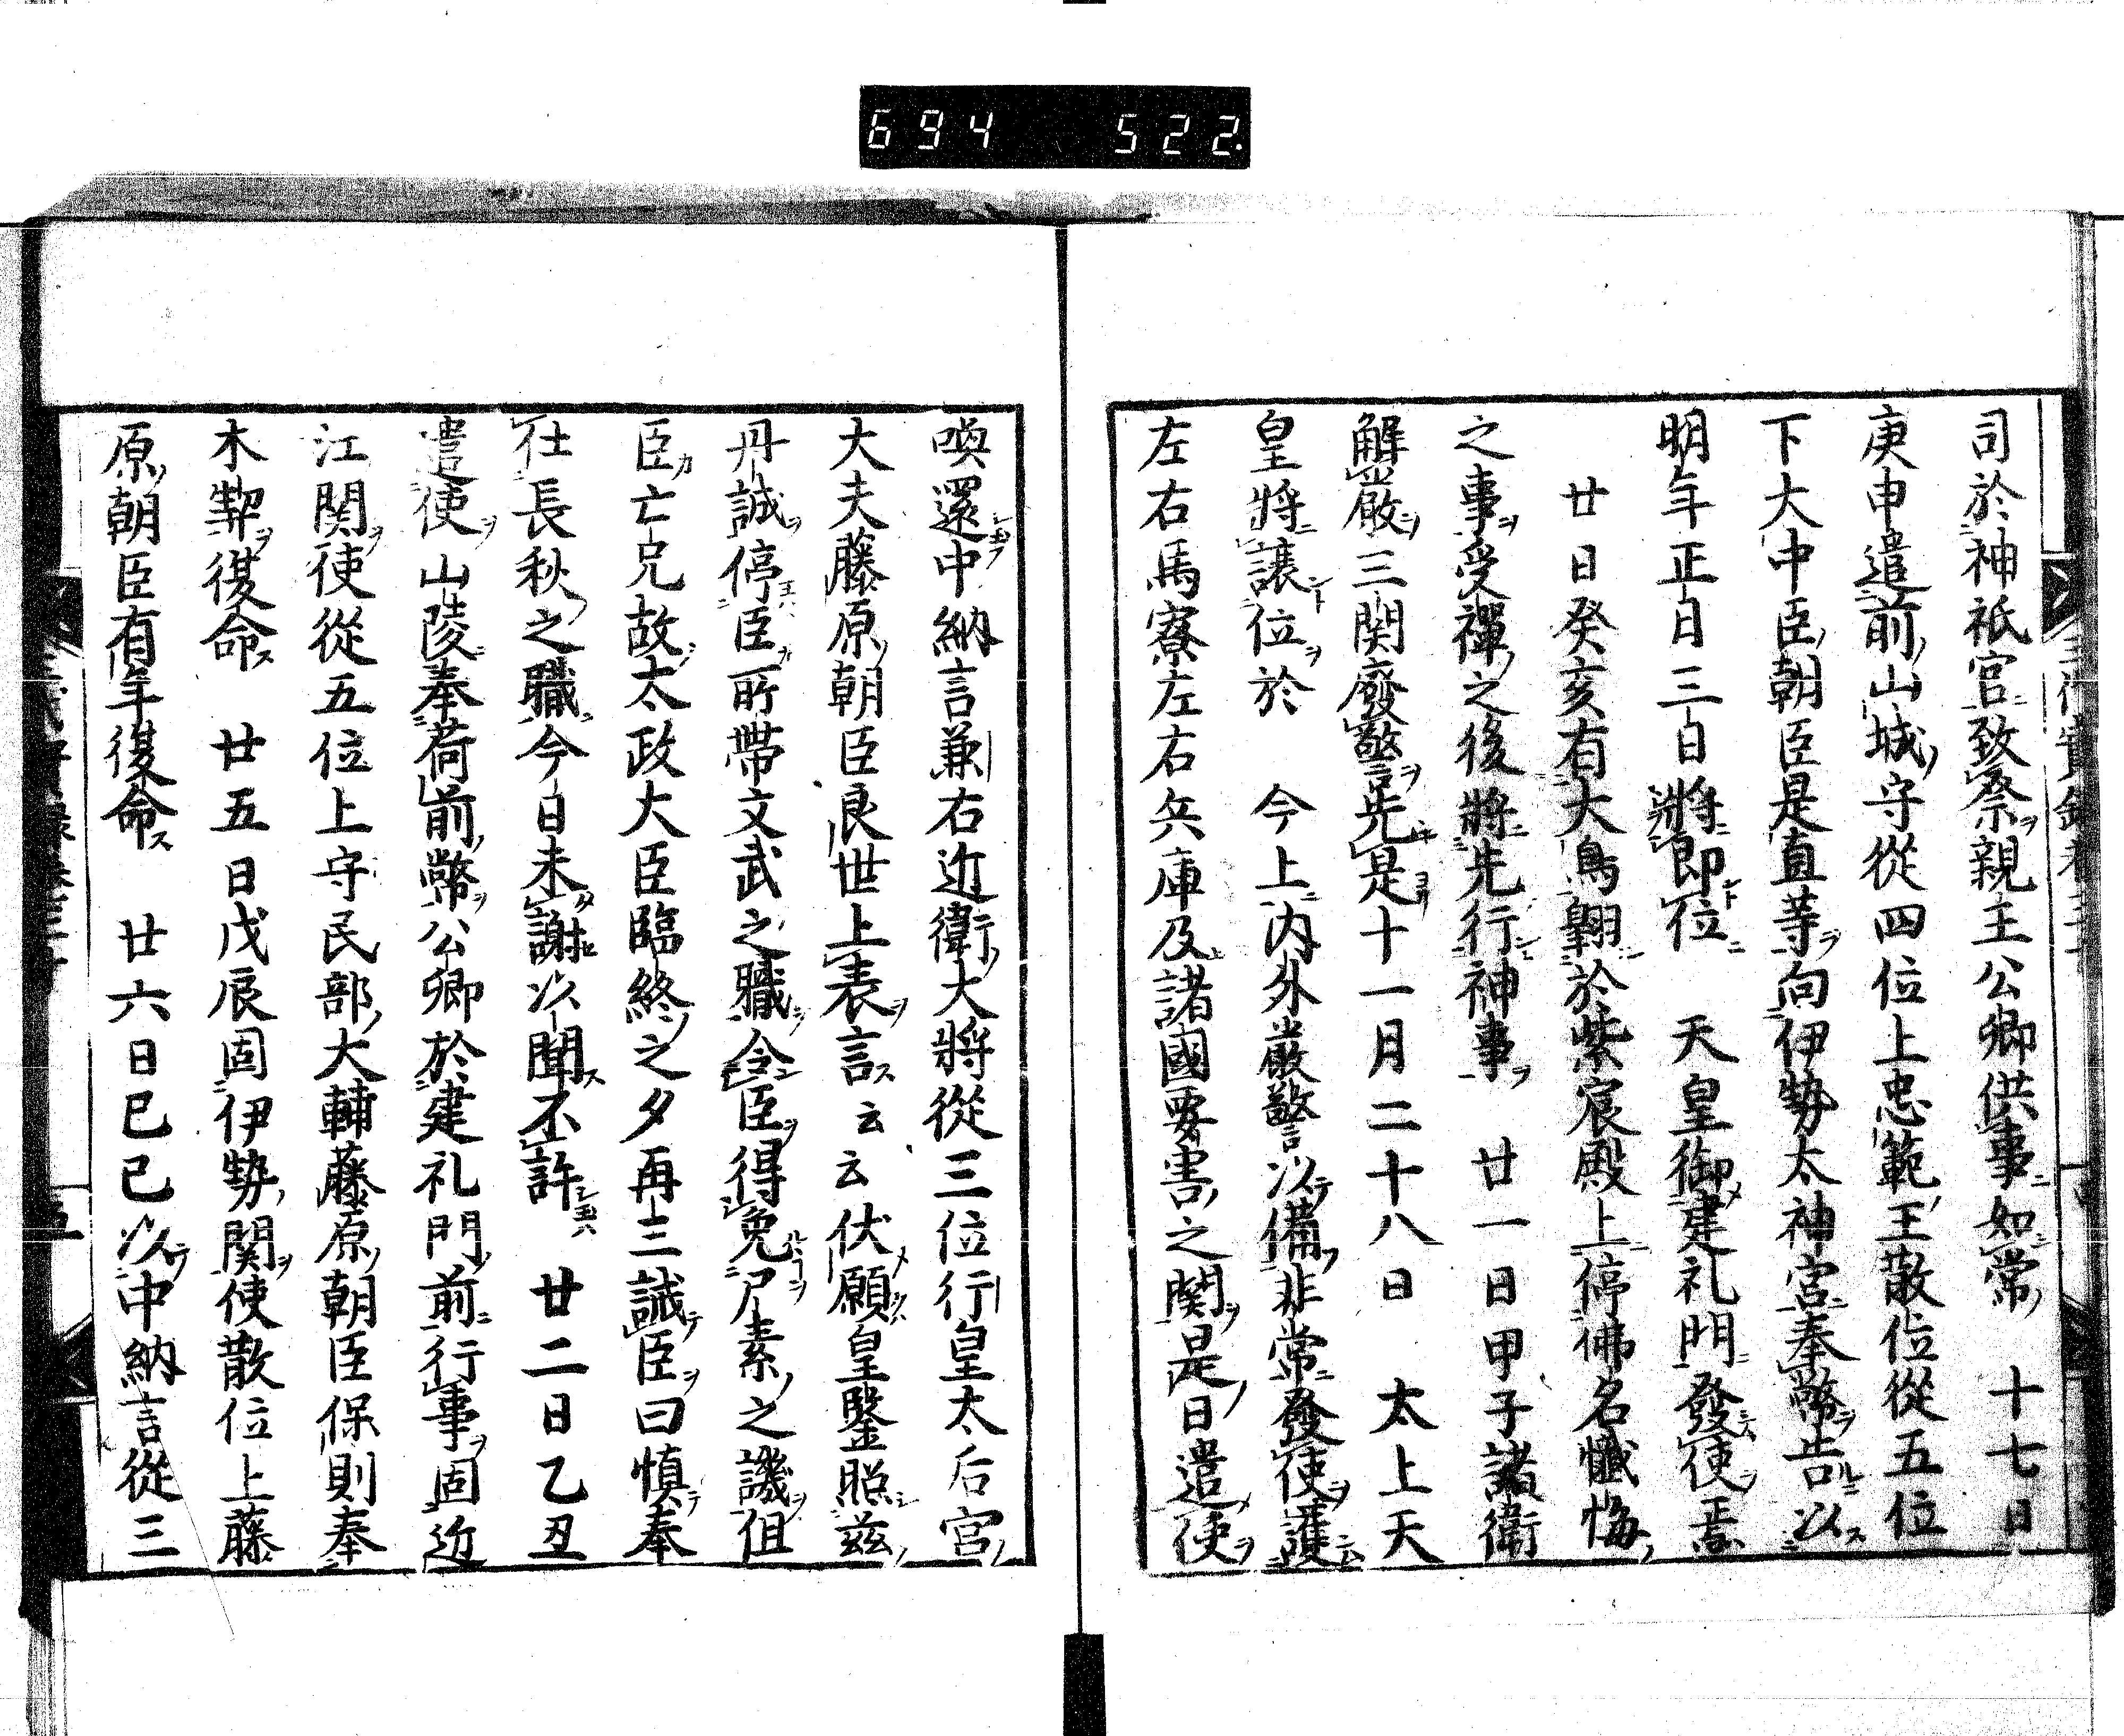 694 522.
司於神祇官致祭親王公卿供事如常 十七日
庚申遣前山城守從四位上忠範王散位從五位
下大中臣朝臣是直等向伊勢太神宮奉幣告以
明年正月三日將即位 天皇御建礼門發使焉
廿日癸亥有大鳥翺於紫宸殿上停佛名懺悔
之事受禪之後將先行神事 廿一日甲子諸衛
解嚴三関廢警先是十一月二十八日 太上天
皇將讓位於 今上内外嚴警以備非常發使護
左右馬寮左右兵庫及諸國要害之関是日遣使
喚還中納言兼右近衛大將從三位行皇太后宮
大夫藤原朝臣良世上表言云云伏願皇鑒照兹
丹誠停臣所帶文武之職令臣得免尸素之譏但
臣亡兄故太政大臣臨終之夕再三誡臣曰慎奉
仕長秋之職今日未謝以聞不許 廿二日乙丑
遣使山陵奉荷前幣公卿於建礼門前行事固近
江関使從五位上守民部大輔藤原朝臣保則奉
木契復命 廿五日戊辰固伊勢関使散位上藤
原朝臣有年復命 廿六日己巳以中納言從三